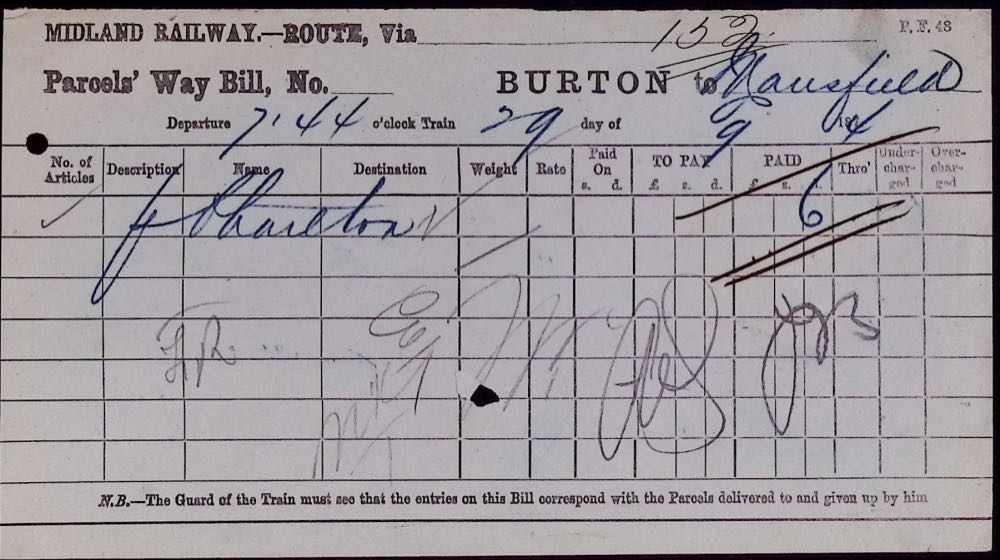 MIDLAND RAILWAY.—ROUTE, Via
P. F. 43
Parcels' Way Bill, No. BURTON to Mansfield
Departure 7.44 o'clock Train 29 day of 9 184
No. of Articles Description Name Destination Weight Rate Paid On s. d. TO PAY £ s. d. PAID £ s. d. Thro' Under-char-ged Over-char-ged
J Charlton 6
N.B.—The Guard of the Train must see that the entries on this Bill correspond with the Parcels delivered to and given up by him